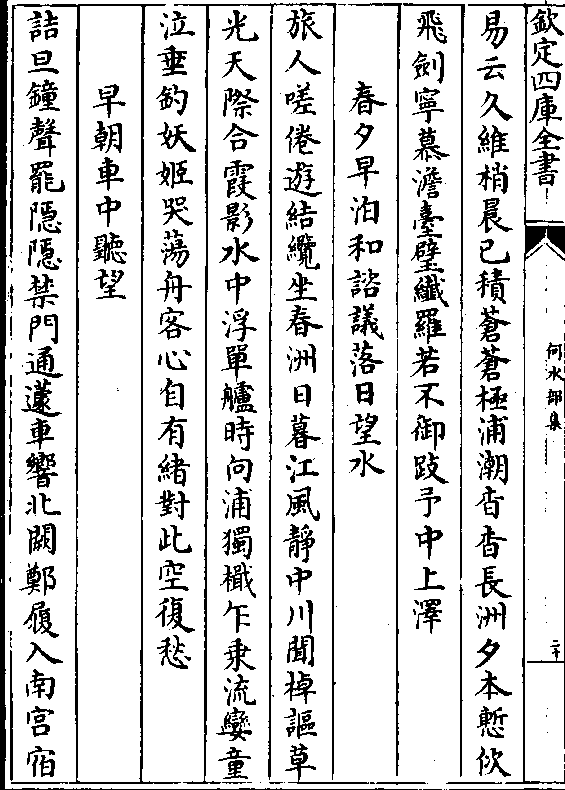 欽定四庫全書
何水部集
二十
易云久維梢晨已積蒼蒼極浦潮杳杳長洲夕本慙佽
飛劍寧慕澹臺璧纖羅若不御跂予中上澤
春夕早泊和諮議落日望水
旅人嗟倦遊結纜坐春洲日暮江風靜中川聞棹謳草
光天際合霞影水中浮單艫時向浦獨檝乍乗流孌童
泣垂釣妖姬哭蕩舟客心自有緒對此空復愁
早朝車中聽望
詰旦鐘聲罷隠隠禁門通蘧車響北闕鄭履入南宫宿